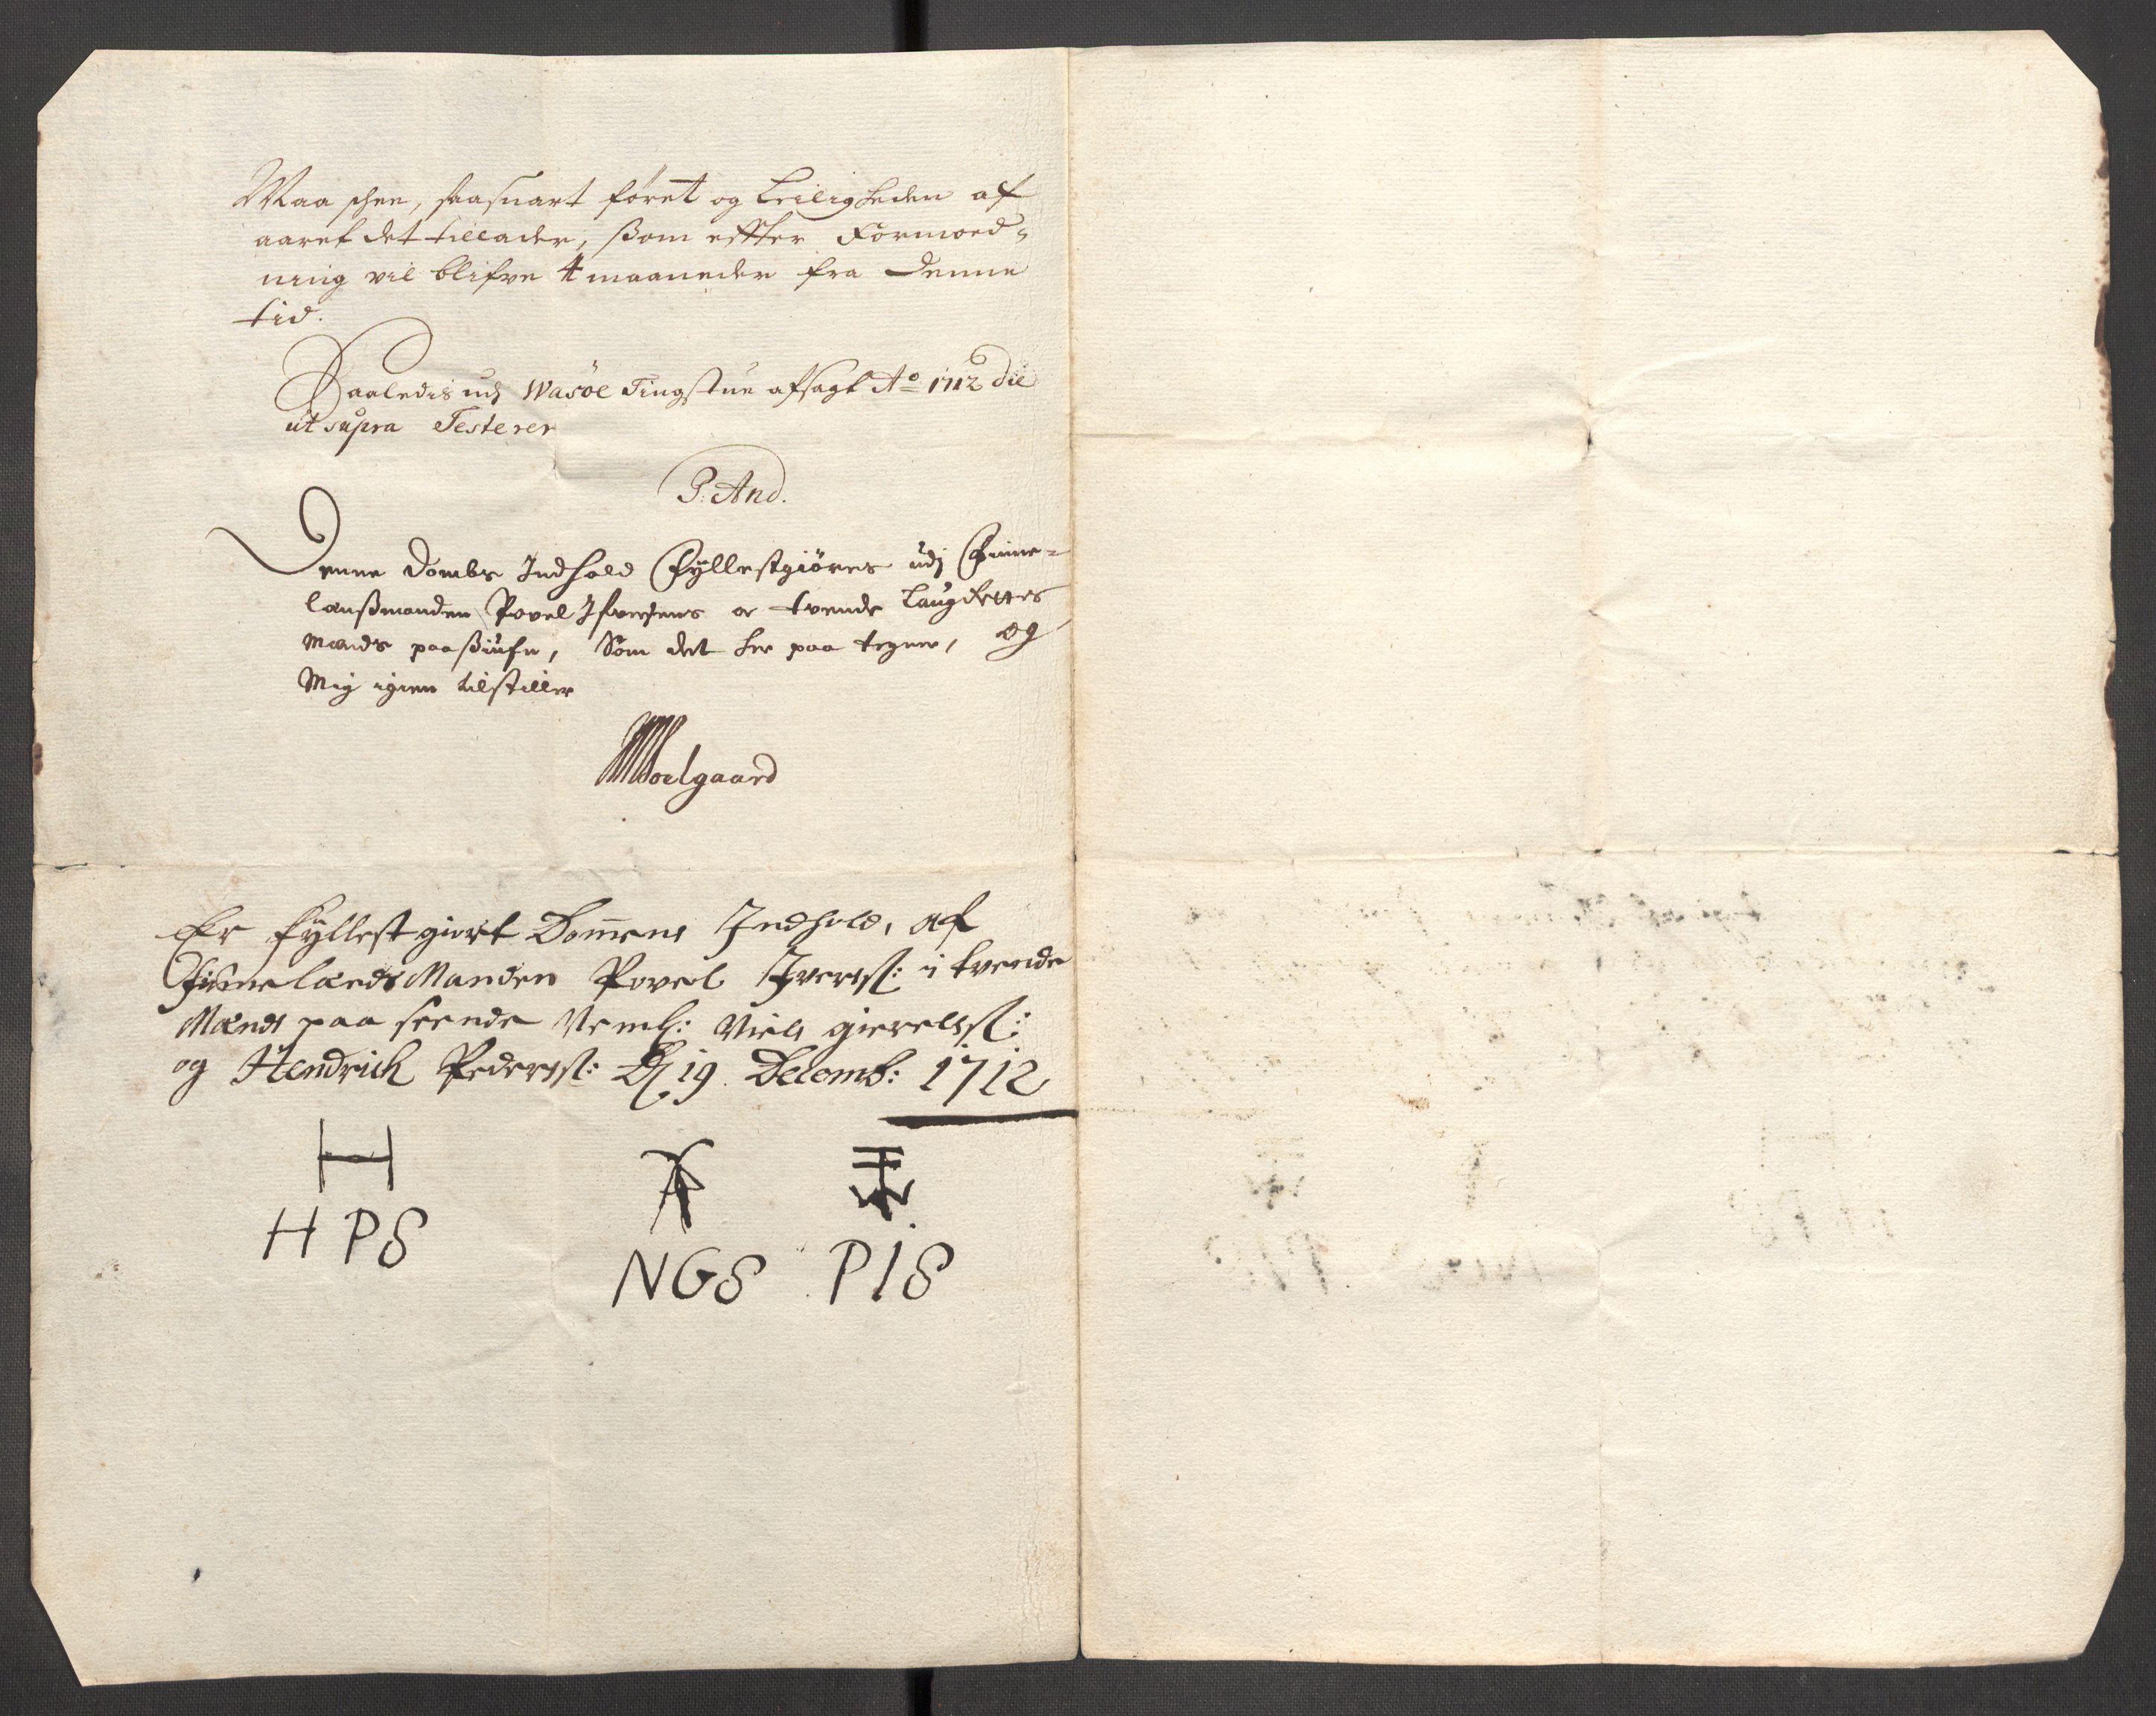 Maa skee, saasnart føret og Leiligheden af
aaret det tillader, ßom effter Formoed-
ning vil blifve 4 maaneder fra denne
tid.
Saaledis udj Wasøe Tingstue afsagt Ao 1712 die
ut supra Testerer
P: And.
Denne Dombs Indhold Fyllestgiøres udj Finne-
lanßmanden Povel Ifversens oc tvende Laugrettes
Mænds paaßiufn, Som det her paa tegner, og
Mig igien tilstiller
Soelgaard
Er fyllest giort Domens Indhold, af
FinnelandsManden Povel Iverss: i tvende
Mænds paa seende Neml: Niels gierelss:
og Hendrich Pederss: D 19. Decemb: 1712
H P S
NGS PIS